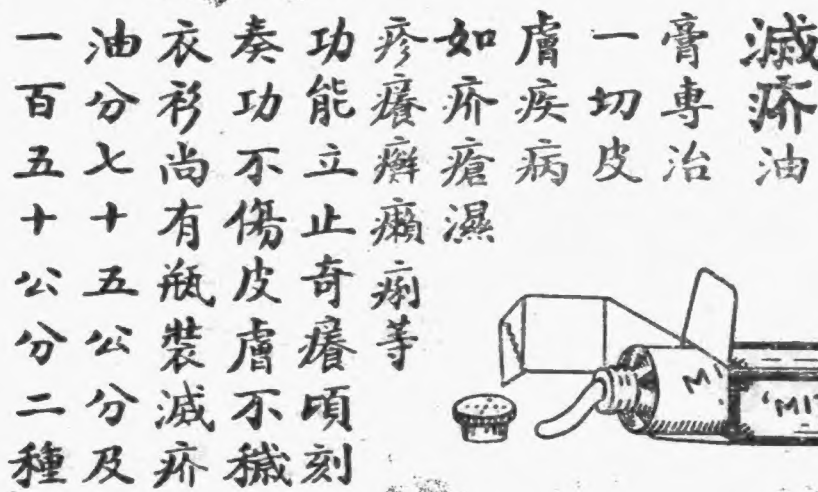 滅疥油
膏專治
一切皮
膚疾病
如疥瘡濕
疹癢癬癩痢等
功能立止奇癢頃刻
奏功不傷皮膚不穢
衣衫尚有瓶裝滅疥
油分七十五公分及
一百五十公分二種
M
'MI